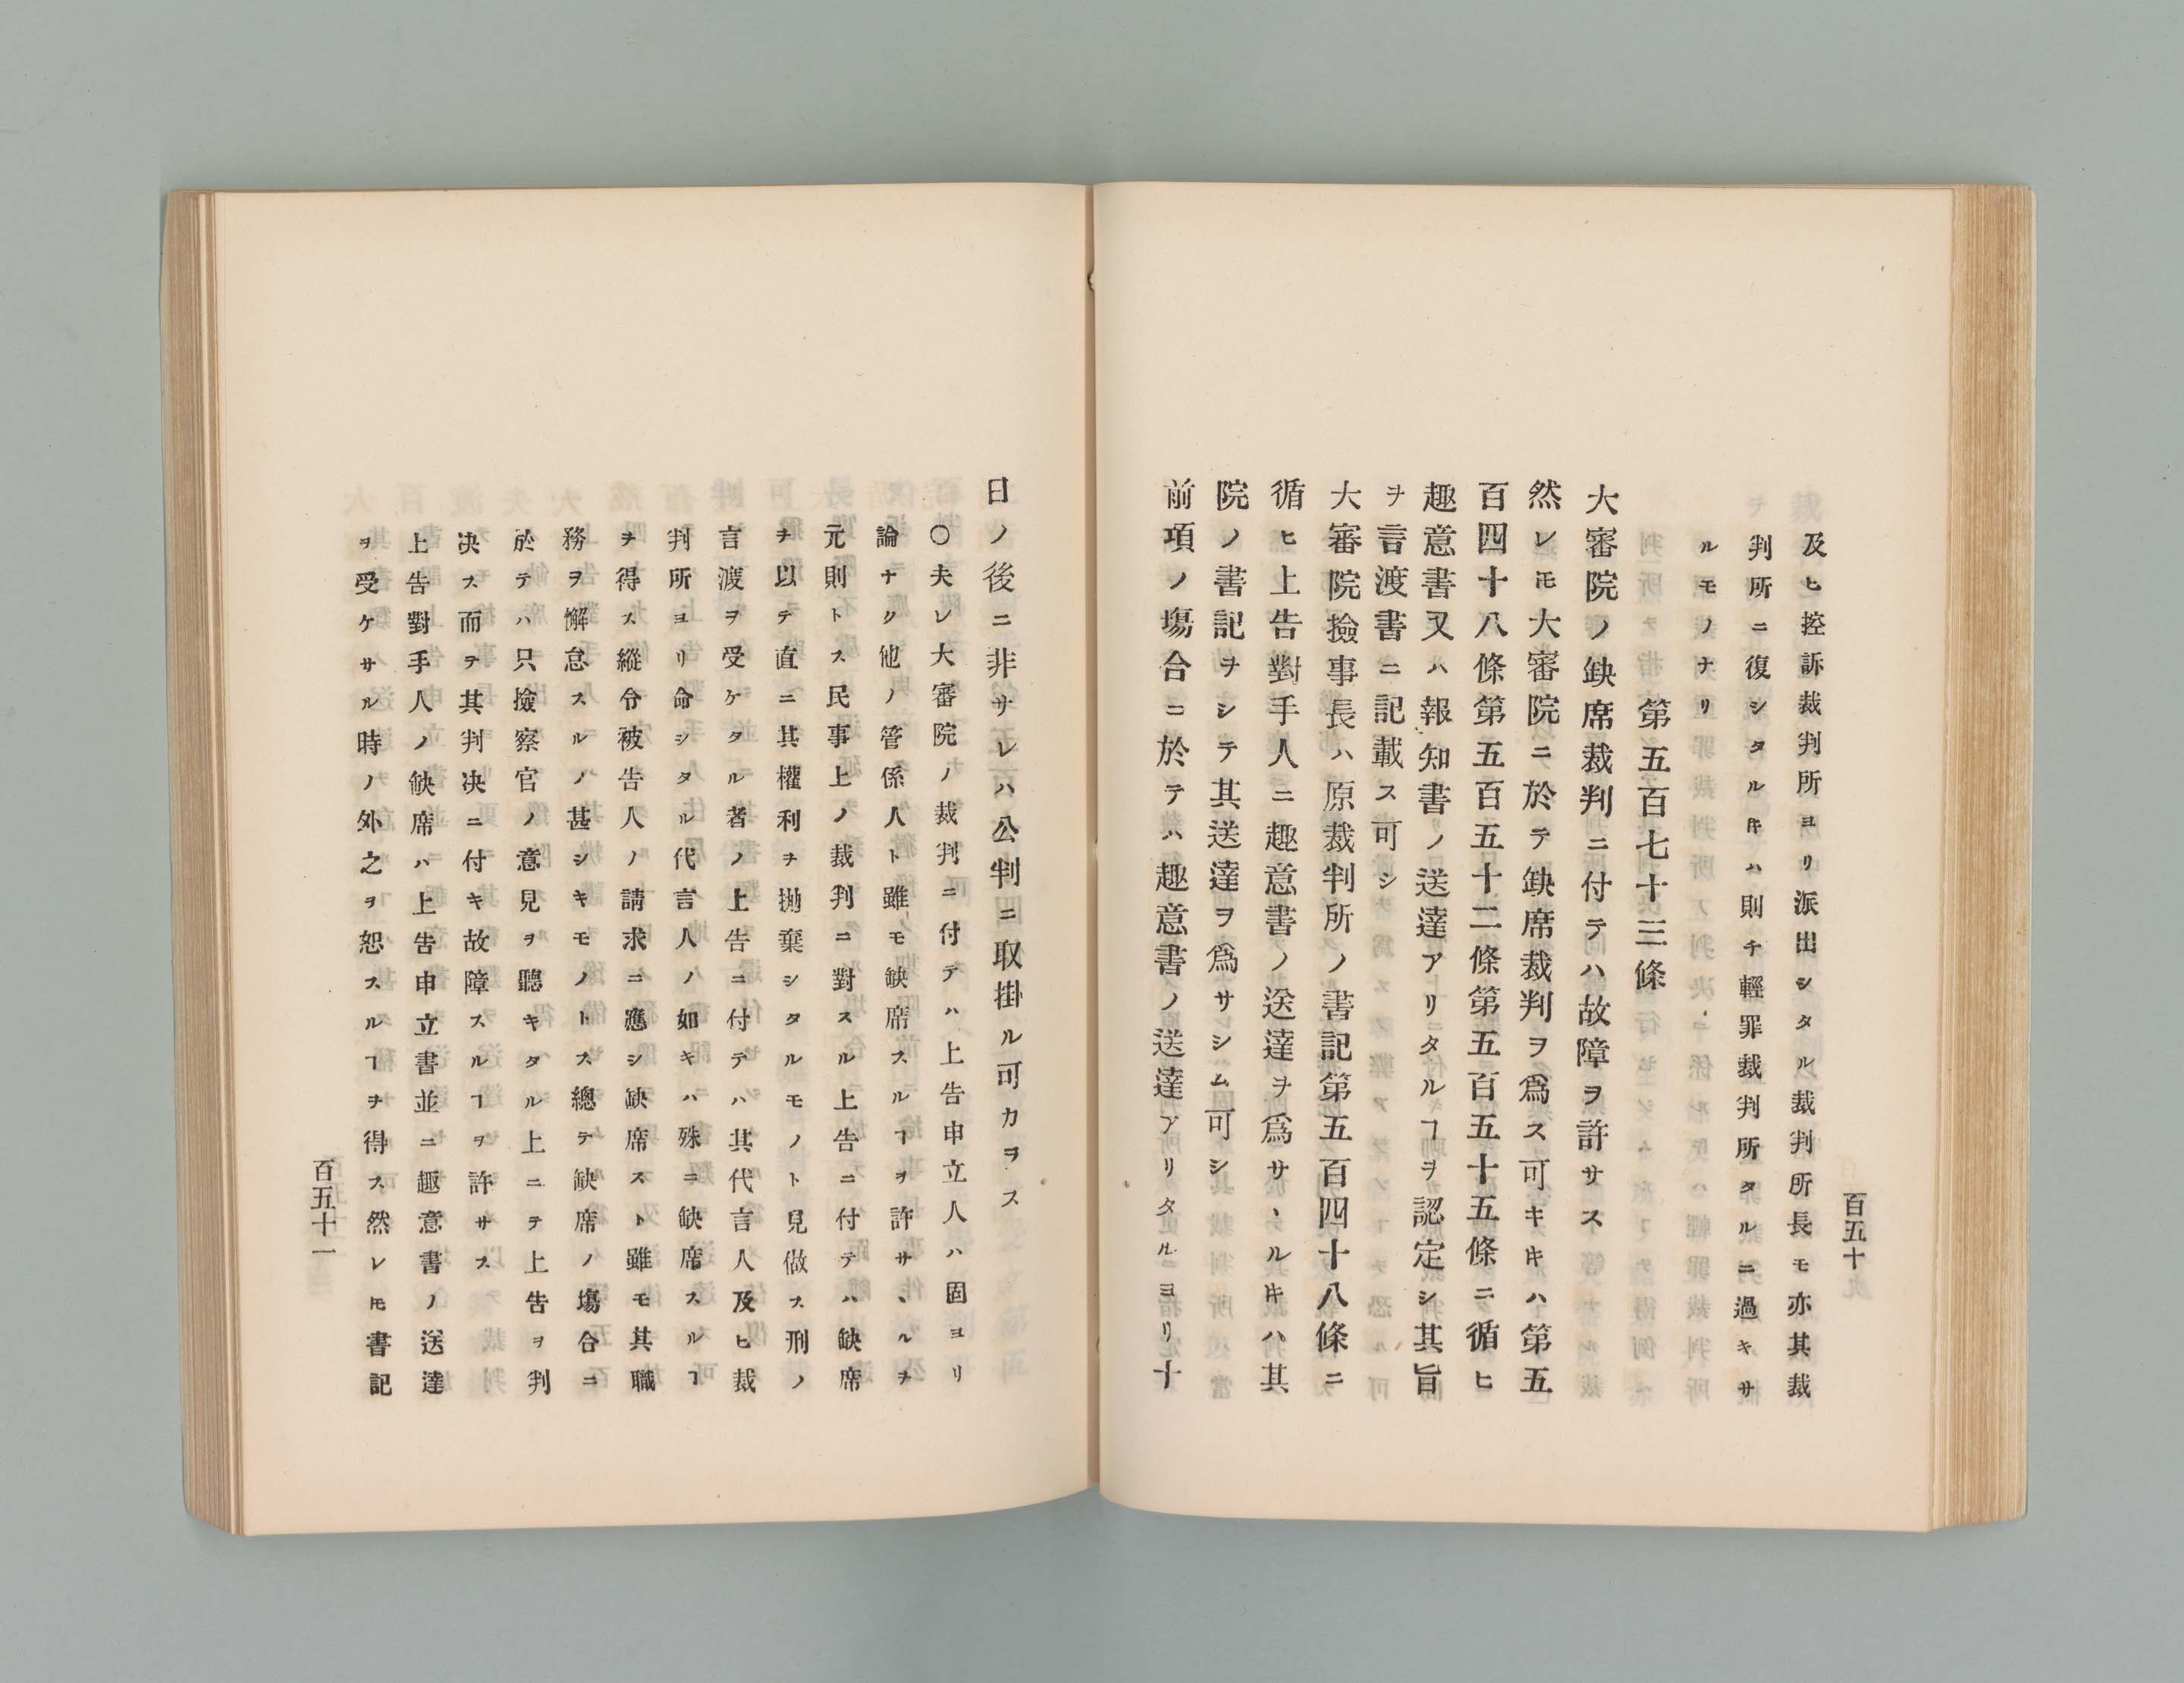 百五十
及ヒ控訴裁判所ヨリ派出シタル裁判所長モ亦其裁
判所ニ復シタルヰハ則チ輕罪裁判所タルニ過キサ
ルモノナリ
第五百七十三條
大審院ノ缺席裁判ニ付テハ故障ヲ許サス
然レ𪜈大審院ニ於テ缺席裁判ヲ爲ス可キヰハ第五
百四十八條第五百五十二條第五百五十五條ニ循ヒ
趣意書又ハ報知書ノ送達アリタルヿヲ認定シ其旨
ヲ言渡書ニ記載ス可シ
大審院撿事長ハ原裁判所ノ書記第五百四十八條ニ
循ヒ上告對手人ニ趣意書ノ送達ヲ爲サヽルヰハ其
院ノ書記ヲシテ其送達ヲ爲サシム可シ
前項ノ塲合ニ於テハ趣意書ノ送達アリタルヨリ十
日ノ後ニ非サレハ公判ニ取掛ル可カヲス
〇夫レ大審院ノ裁判ニ付テハ上告申立人ハ固ヨリ
論ナク他ノ管係人ト雖モ缺席スルヿヲ許サヽルヲ
元則トス民事上ノ裁判ニ對スル上告ニ付テハ缺席
ヲ以テ直ニ其權利ヲ拋棄シタルモノト見做ス刑ノ
言渡ヲ受ケタル者ノ上告ニ付テハ其代言人及ヒ裁
判所ヨリ命シタル代言人ノ如キハ殊ニ缺席スルヿ
ヲ得ス縱令被告人ノ請求ニ應シ缺席スト雖モ其職
務ヲ懈怠スルノ甚シキモノトス總テ缺席ノ塲合ニ
於テハ只撿察官ノ意見ヲ聽キタル上ニテ上告ヲ判
决ス而ヲ其判决ニ付キ故障スルヿヲ許サス
上告對手人ノ缺席ハ上告申立書並ニ趣意書ノ送達
ヲ受ケサル時ノ外之ヲ恕スルヿヲ得ス然レ𪜈書記
百五十一